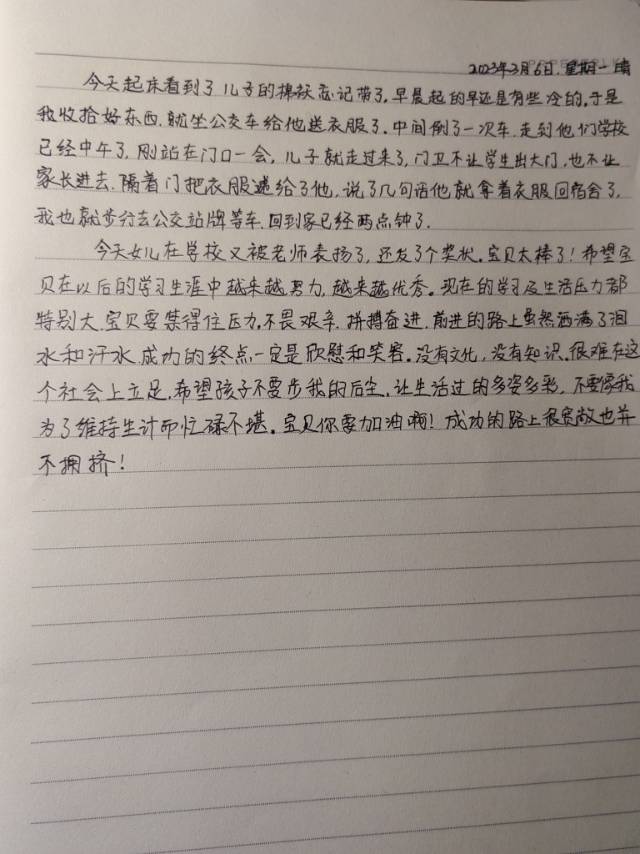 2023年3月6日.星期一 晴
今天起床看到了儿子的棉袄忘记带了.早晨起的早还是有些冷的.于是
我收拾好东西.就坐公交车给他送衣服了.中间倒了一次车.走到他们学校
已经中午了.刚站在门口一会,儿子就走过来了,门卫不让学生出大门,也不让
家长进去.隔着门把衣服递给了他,说了几句话他就拿着衣服回宿舍了,
我也就步行去公交站牌等车.回到家已经两点钟了.
今天女儿在学校又被老师表扬了,还发了个奖状.宝贝太棒了!希望宝
贝在以后的学习生涯中越来越努力,越来越优秀。现在的学习及生活压力都
特别大.宝贝要禁得住压力.不畏艰辛,拼搏奋进.前进的路上虽然洒满了泪
水和汗水.成功的终点一定是欣慰和笑容。没有文化,没有知识.很难在这
个社会上立足.希望孩子不要步我的后尘.让生活过的多姿多彩,不要像我
为了维持生计而忙碌不堪。宝贝你要加油啊!成功的路上很宽敞也并
不拥挤!